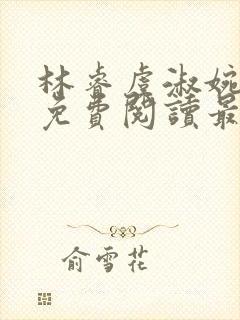 林睿虞淑婉
免費閱讀最
俞雪花